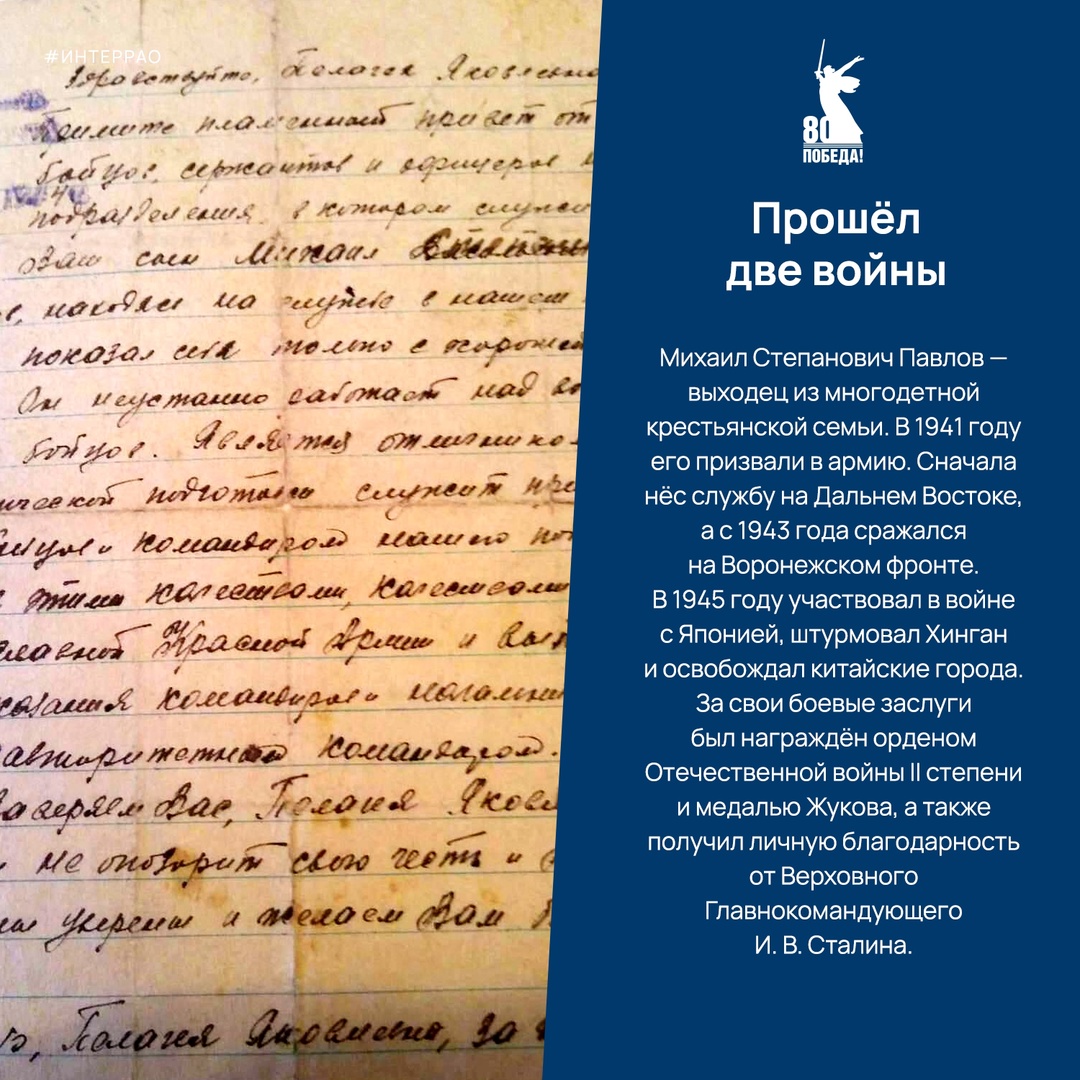 #ИНТЕРРАО
Здравствуйте, Пелагея Яковлевна
Примите пламенный привет от
бойцов, сержантов и офицеров
подразделения, в котором служит
Ваш сын Михаил
находясь на службе в нашем
показал себя только с хорошей
Он неустанно работает над
бойцов. Является отличником
подготовки служит
командиром нашего
этими качествами, качествами
Красной Армии и
командиров и начальник
авторитетном командиром.
Заверяем Вас, Пелагея Яковл
не опозорит свою честь и
уверены и желаем Вам
Пелагея Яковлевна, за
80
ПОБЕДА!
Прошёл
две войны
Михаил Степанович Павлов —
выходец из многодетной
крестьянской семьи. В 1941 году
его призвали в армию. Сначала
нёс службу на Дальнем Востоке,
а с 1943 года сражался
на Воронежском фронте.
В 1945 году участвовал в войне
с Японией, штурмовал Хинган
и освобождал китайские города.
За свои боевые заслуги
был награждён орденом
Отечественной войны II степени
и медалью Жукова, а также
получил личную благодарность
от Верховного
Главнокомандующего
И. В. Сталина.